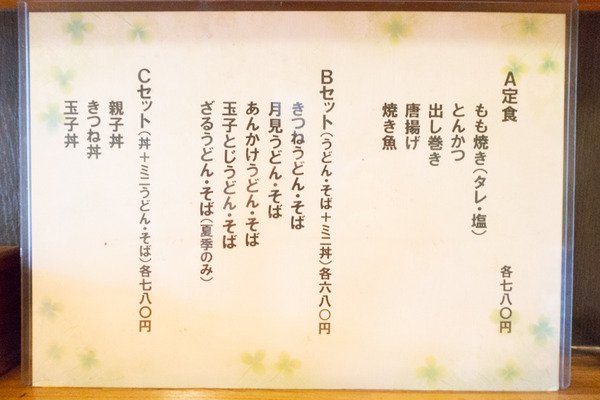 A定食 各七八〇円
もも焼き(タレ・塩)
とんかつ
出し巻き
唐揚げ
焼き魚
Bセット(うどん・そば+ミニ丼)各六八〇円
きつねうどん・そば
月見うどん・そば
あんかけうどん・そば
玉子とじうどん・そば
ざるうどん・そば(夏季のみ)
Cセット(丼+ミニうどん・そば)各七八〇円
親子丼
きつね丼
玉子丼